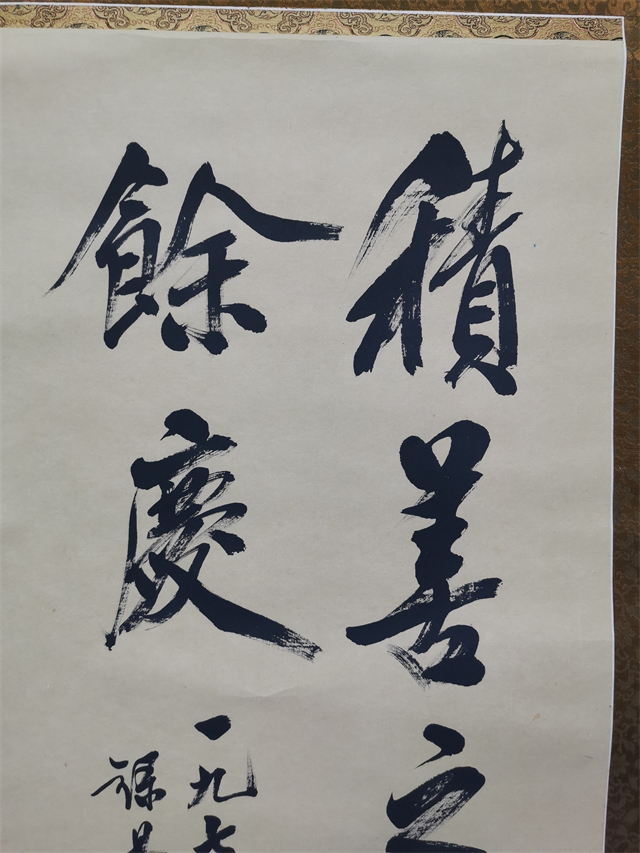 積善之
餘慶
一九七